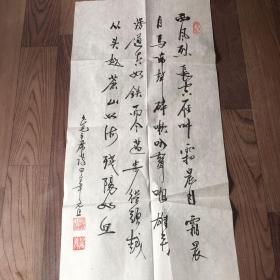 西风烈长空雁叫霜晨月霜晨
月马蹄声碎喇叭声咽雄关
漫道真如铁而今迈步从头越
从头越苍山如海残阳如血